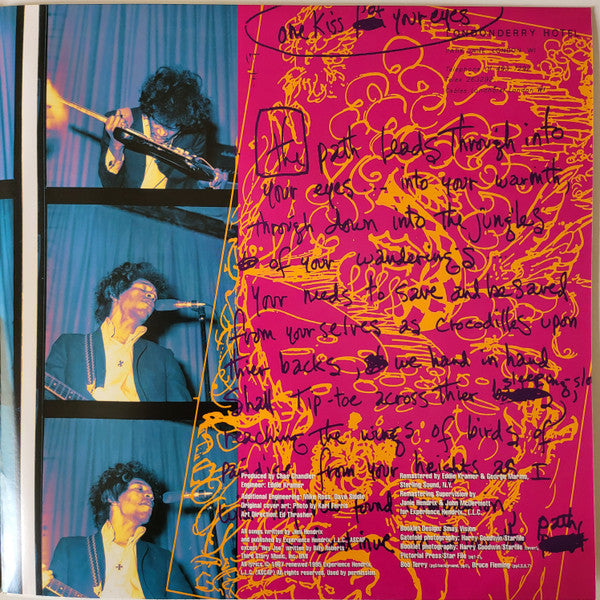 one Kiss your eyes
LONDONDERRY HOTEL
the path Leads through into
your eyes... into your warmth,
through down into the jungles
of your wanderings...
Your needs to save and be saved
from yourselves as crocodiles upon
thier backs, we hand in hand
Shall tip-toe across thier
reaching the wings of birds of
from your heights as I
found
path
Love
Produced by Chas Chandler
Engineer: Eddie Kramer
Additional Engineering: Mike Ross, Dave Siddle
Original cover art: Photo by Karl Ferris
Art Direction: Ed Thrasher
All songs written by Jimi Hendrix
and published by Experience Hendrix, L.L.C. (ASCAP)
except
Third Story Music, Inc. BMI
All lyrics © 1967 renewed 1995 Experience Hendrix,
L.L.C. (ASCAP) All rights reserved. Used by permission.
Remastered by Eddie Kramer & George Marino,
Sterling Sound, N.Y.
Remastering Supervision by
Janie Hendrix & John McDermott
for Experience Hendrix, L.L.C.
Booklet Design: Smay Vision
Gatefold photography: Harry Goodwin/Starfile
Booklet photography: Harry Goodwin/Starfile
Pictorial Press/Star File
Bob Terry Bruce Fleming